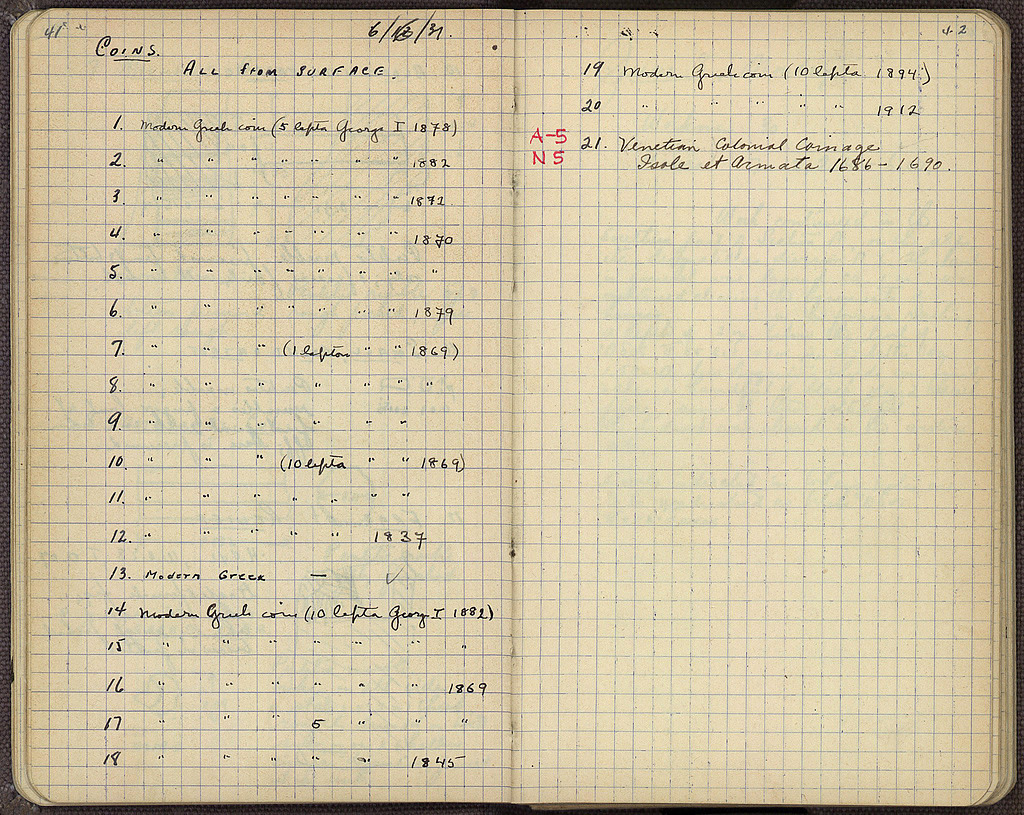 41
6/13/31.
COINS.
ALL from SURFACE.
1. Modern Greek coin (5 lepta George I 1878)
2. " " " " " " " 1882
3. " " " " " " " 1872
4. " " " " " " " 1870
5. " " " " " " " "
6. " " " " " " " 1879
7. " " " (1 lepton " " 1869)
8. " " " " " " "
9. " " " " " "
10. " " " (10 lepta " " 1869)
11. " " " " " " "
12. " " " " " 1837
13. Modern Greek — ✓
14 Modern Greek coin (10 lepta George I 1882)
15 " " " " " " "
16 " " " " " " 1869
17 " " " 5 " " "
18 " " " " " 1845
42
19 Modern Greek coin (10 lepta 1894)
20 " " " " " 1912
A-5
N5
21. Venetian Colonial Coinage
Isole et Armata 1686 - 1690.